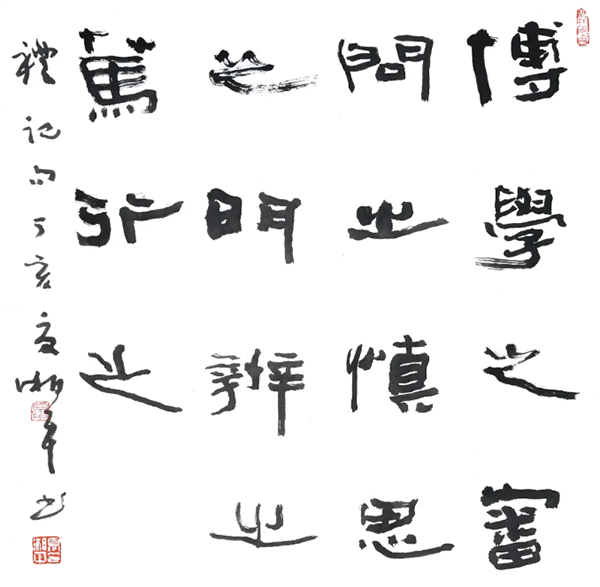 博學之審
問之慎思
之明辨之
篤行之
禮記句丁亥夏湘平書